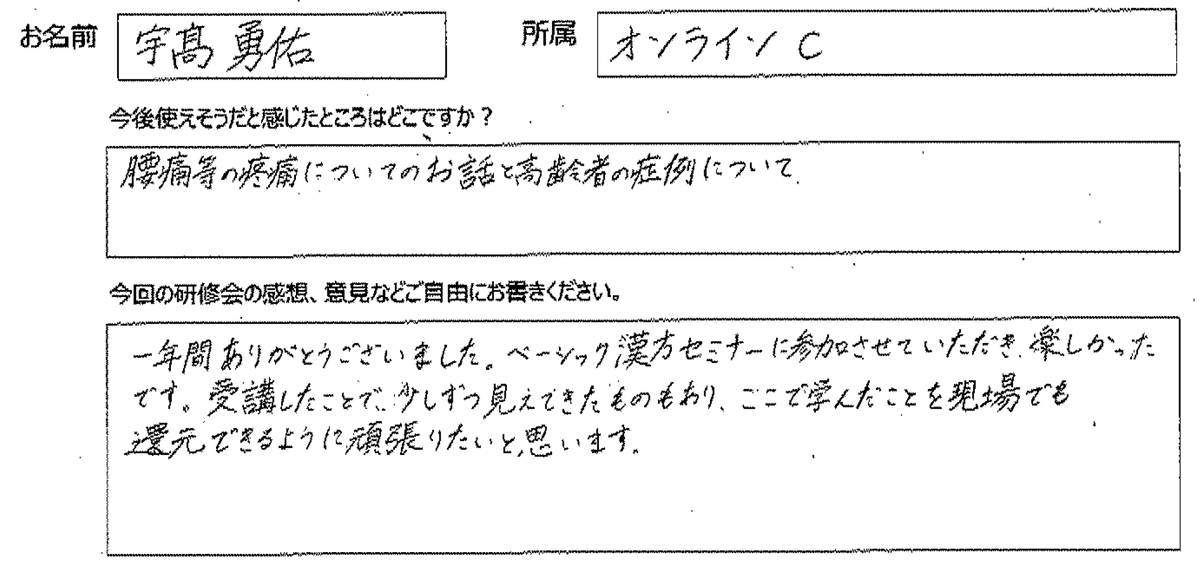 お名前 宇髙 勇佑 所属 オンライン C
今後使えそうだと感じたところはどこですか？
腰痛等の疼痛についてのお話と高齢者の症例について
今回の研修会の感想、意見などご自由にお書きください。
一年間ありがとうございました。ベーシック漢方セミナーに参加させていただき、楽しかった
です。受講したことで、少しずつ見えてきたものもあり、ここで学んだことを現場でも
還元できるように頑張りたいと思います。